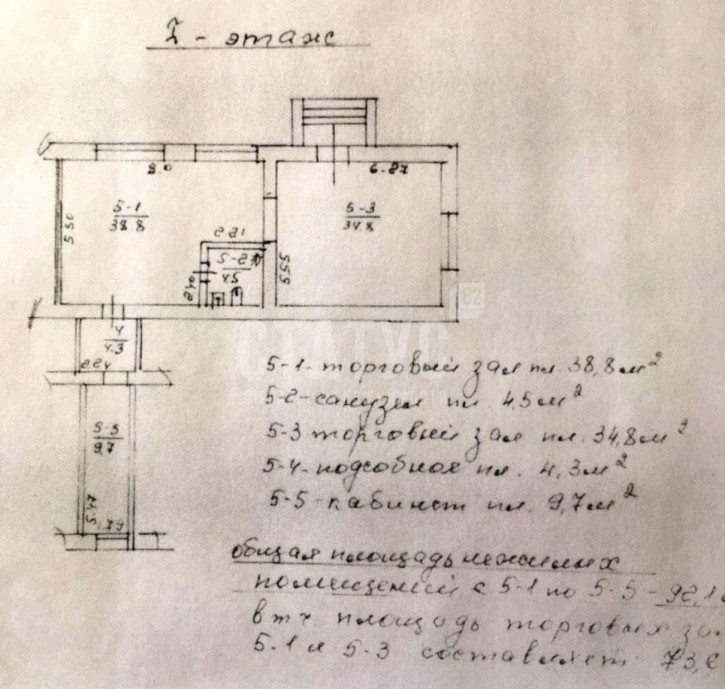 I - этаж
8.0
6.87
5-1
38.8
5-3
34.8
5.50
2.21
5-2
4.5
5.55
2.40
4
4.3
2.24
5-5
9.7
5.47
1.79
СТАТУС
82
5-1- торговый зал пл. 38,8м²
5-2-санузел пл. 4,5м²
5-3 торговый зал пл. 34,8м²
5-4-подсобная пл. 4,3м²
5-5-кабинет пл. 9,7м²
общая площадь нежилых
помещений с 5-1 по 5-5 - 92,1
в т.ч. площадь торговых
5-1 и 5-3 составляет 73,6